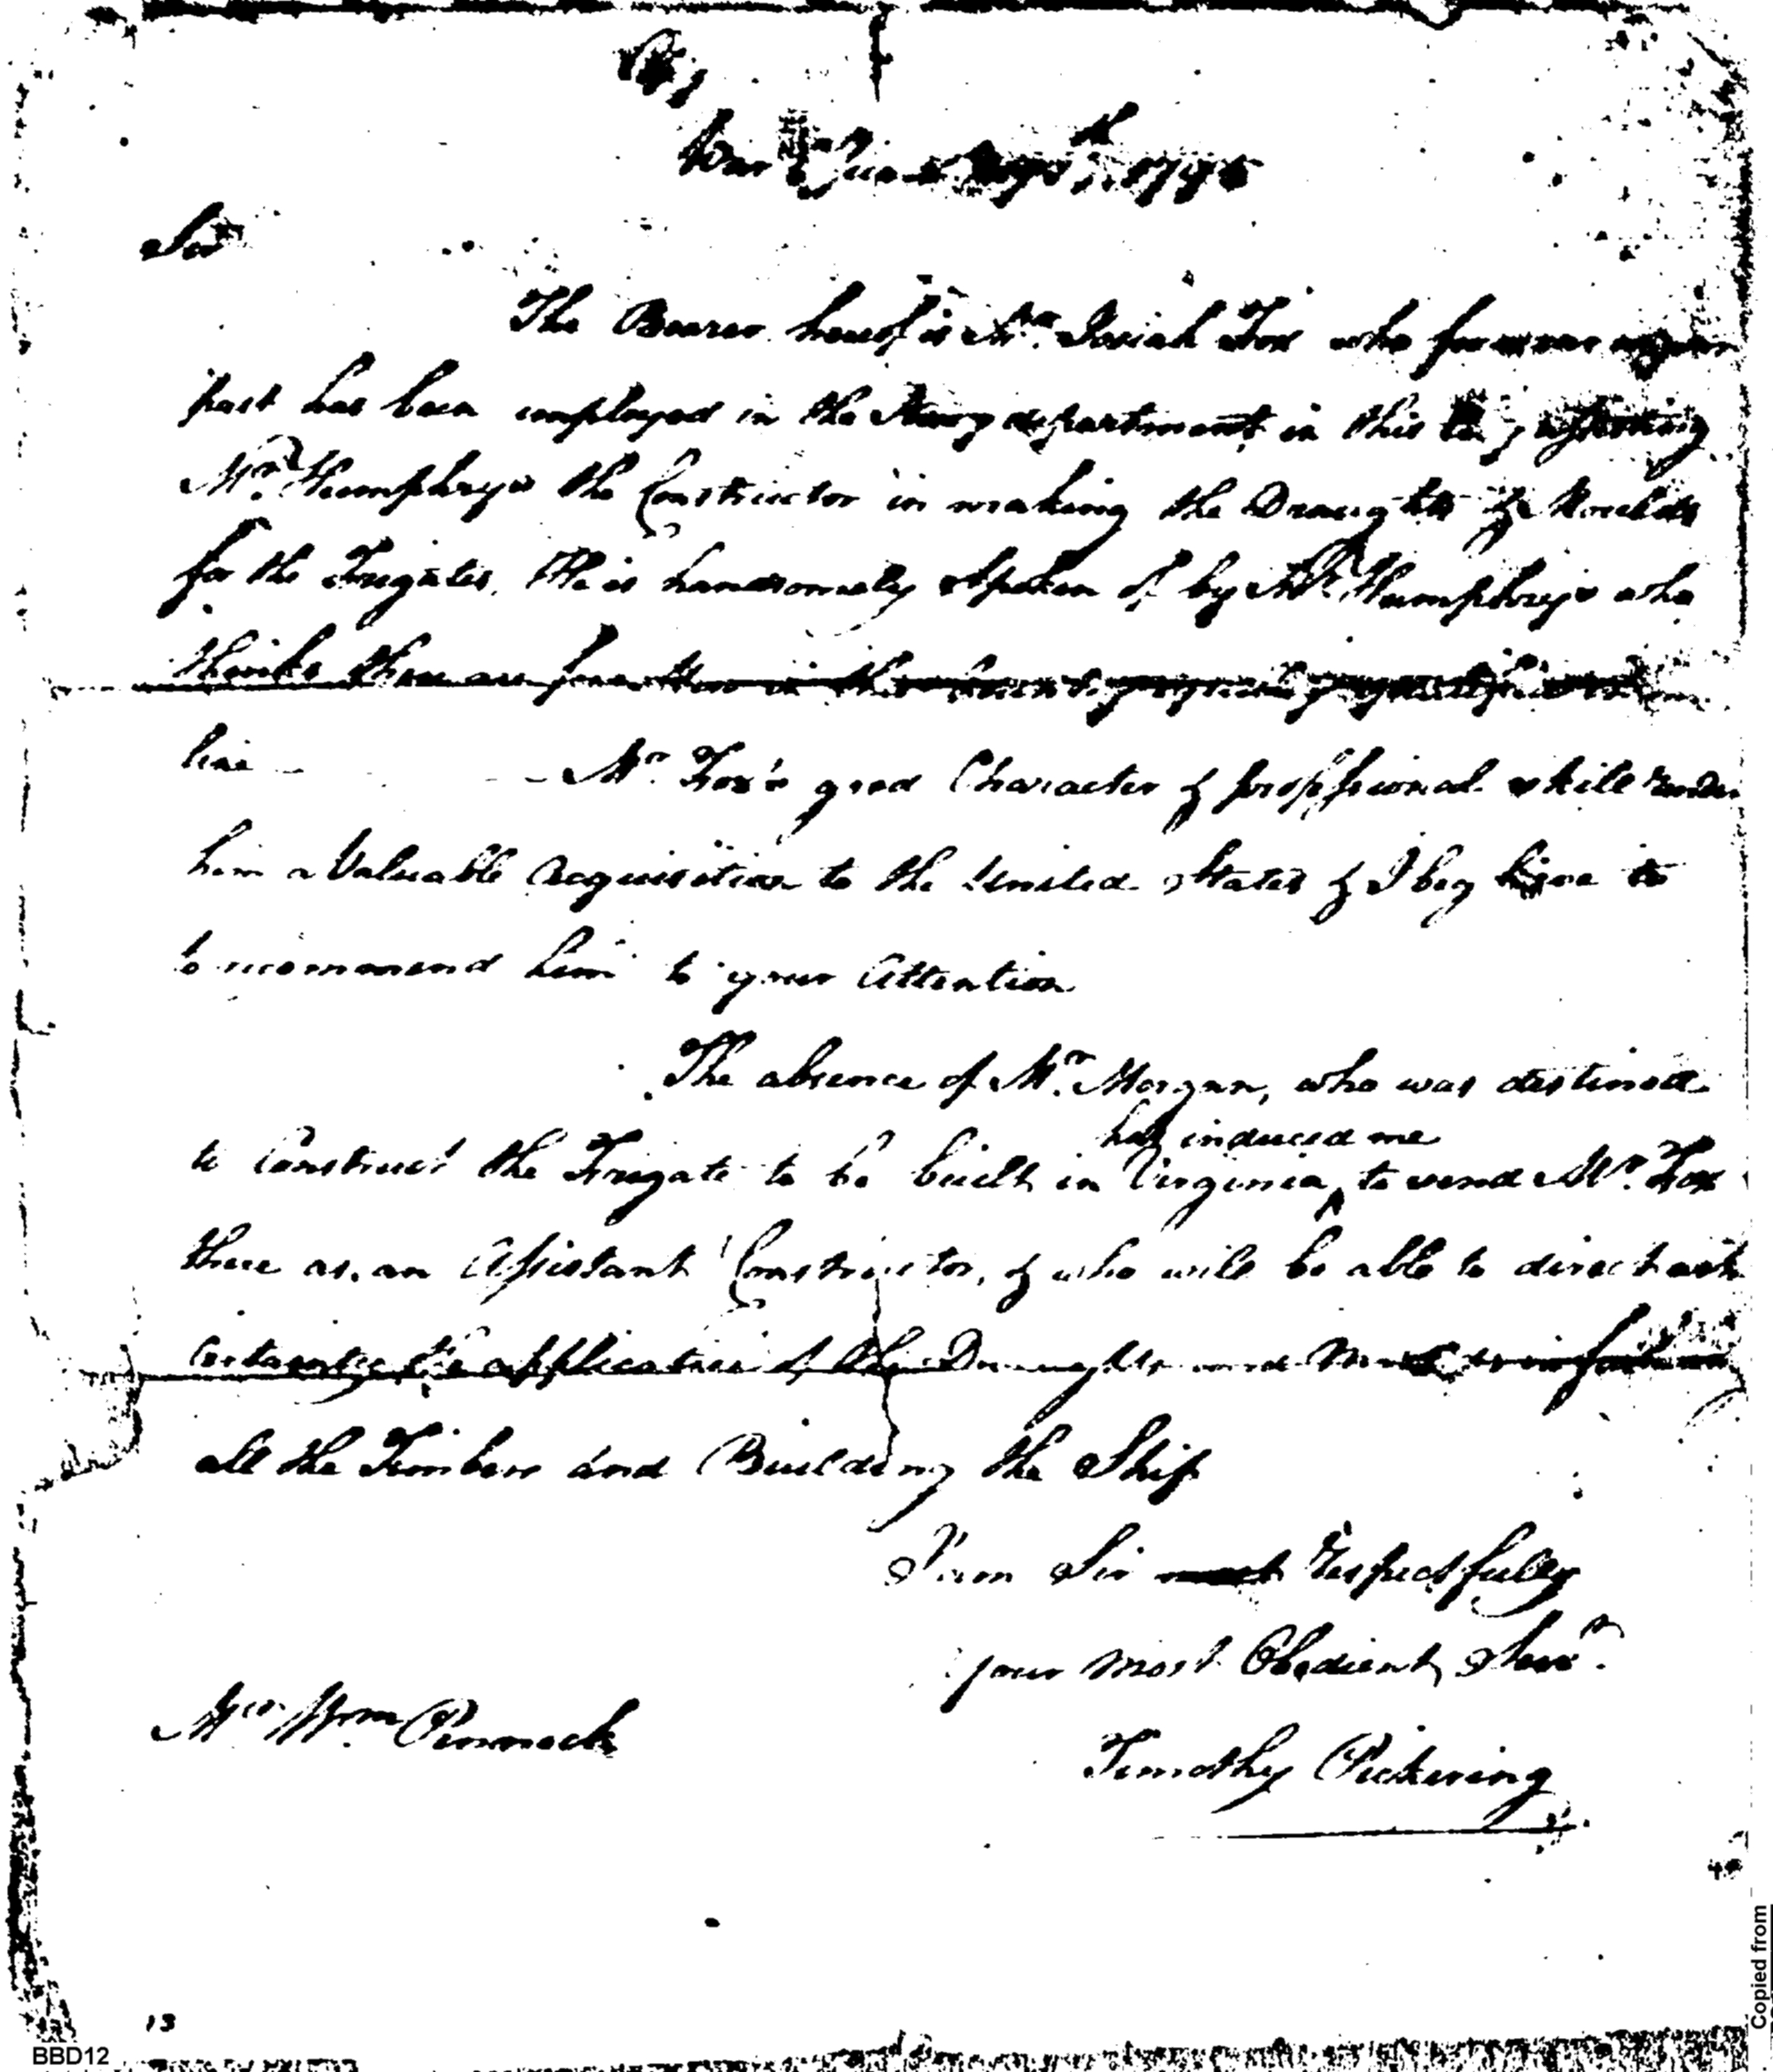 War Office 1795
Sir
The Bearer hereof is Mr. Josiah Fox who for
past has been employed in the Navy department in this assisting
Mr. Humphrys the Constructor in making the Draughts & Moulds
for the Frigates. He is handsomely Spoken of by Mr. Humphrys who
thinks there are few Men in this Country equally qualified in
line - - Mr. Fox's good Character & proffsional skill render
him a Valuable Acquisition to the United States & I beg leave to
to recommend him to your Attention
The absence of Mr. Morgan, who was destined
has induced me
to Construct the Frigate to be built in Virginia, to send Mr. Fox
there as, an Assistant Constructor, & who will be able to direct with
Certainty the application of the Draughts and Moulds in
all the Timbers and Building the Ship
I am Sir most Respectfully
your most Obedient Servt.
Mr. Wm. Pennock
Timothy Pickering
13
BBD12
Copied from